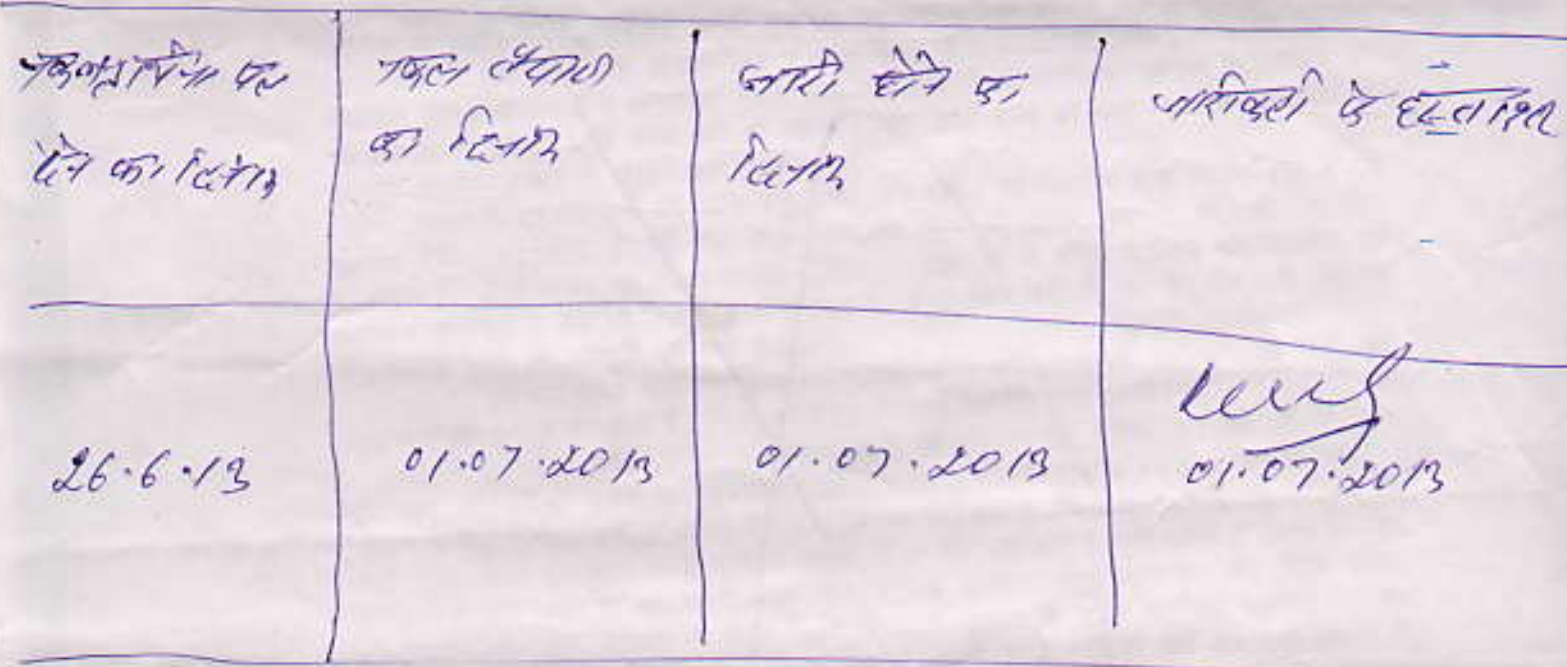 नकल प्रार्थना पत्र
देने का दिनांक
नकल तैयारी
का दिनांक
जारी होने का
दिनांक
जारीकर्ता के हस्ताक्षर
26.6.13
01.07.2013
01.07.2013
01.07.2013